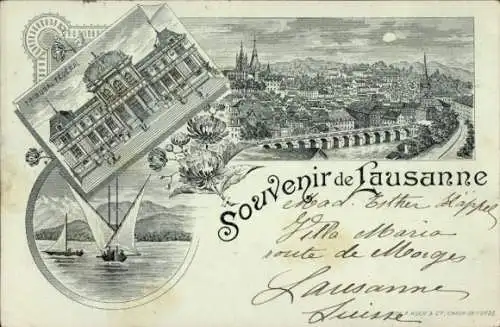 TRIBUNAL FÉDÉRAL
Souvenir de Lausanne
Mad. Esther Hippel
Villa Maria
route de Morges
Lausanne
Suisse